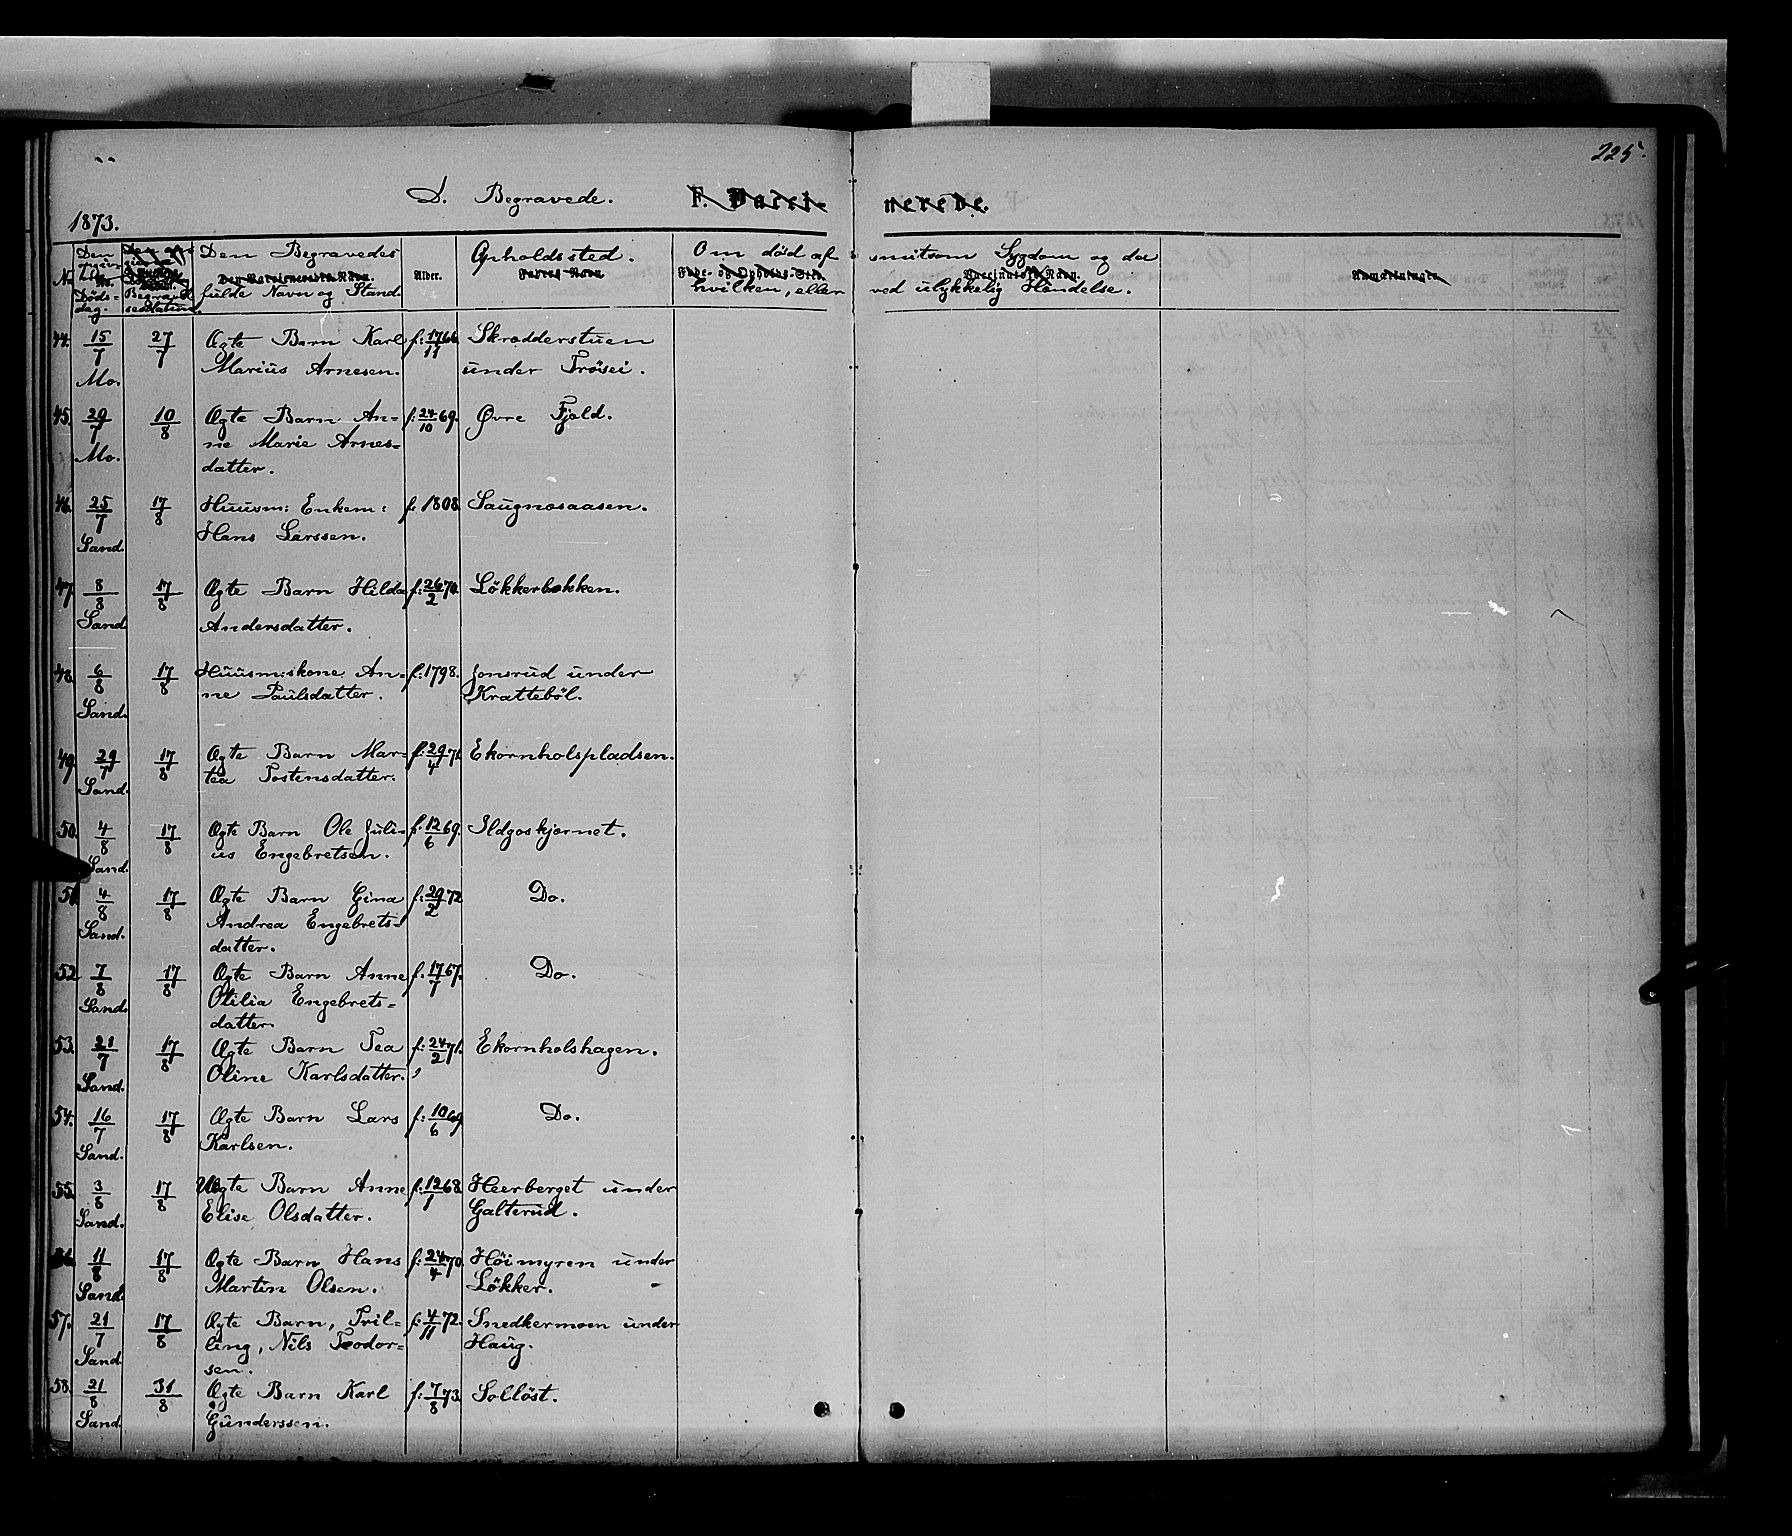 225.
D. Begravede. F. Vacci- nerede.
1873.
No. Dødsdag. Begravelsesdatum. Den Begravedes fulde Navn og Stand. Alder. Opholdssted. Om død af smitsom Sygdom og da hvilken, eller ved ulykkelig Hændelse.
Den Vaccineredes Navn. Faders Navn Føde- og Opholds-Sted. Vaccinators Navn. Anmærkninger.
44. 15/7 27/7 Ægte Barn Karl f: 17/11 66. Skrædderstuen
Mo. Marius Arnesen. under Trøisei.
45. 29/7 10/8 Ægte Barn An- f: 24/10 69. Øvre Fjeld.
Mo. ne Marie Arnes-
datter.
46. 25/7 17/8 Huusm: Enkem: f. 1808. Saugnæsaasen.
Sand. Hans Larssen.
47. 8/8 17/8 Ægte Barn Hilda f: 26/2 70. Løkkerbækken.
Sand. Andersdatter.
48. 6/8 17/8 Huusm:skone An- f: 1798. Jonsrud under
Sand. ne Paulsdatter. Krattebøl.
49. 29/7 17/8 Ægte Barn Mar- f: 29/4 71. Ekornholspladsen.
Sand. tea Tostensdatter.
50. 4/8 17/8 Ægte Barn Ole Juli- f: 12/6 69. Ildgoskjærnet.
Sand. us Engebretsen.
51. 4/8 17/8 Ægte Barn Gina f: 29/2 72 Do.
Sand. Andrea Engebrets-
datter.
52. 7/8 17/8 Ægte Barn Anne f. 17/7 67. Do.
Sand. Otilia Engebrets-
datter.
53. 21/7 17/8 Ægte Barn Tea f: 24/2 71. Ekornholshagen.
Sand. Oline Karlsdatter.
54. 16/7 17/8 Ægte Barn Lars f: 10/6 69 Do.
Sand. Karlsen.
55. 3/8 17/8 Uægte Barn Anne f: 12/1 68. Heerberget under
Sand. Elise Olsdatter. Galterud.
11/8 17/8 Ægte Barn Hans f: 24/4 70. Høimyren under
Sand. Martin Olsen. Løkker.
57. 21/7 17/8 Ægte Barn, Tril- f: 4/11 72. Snedkermoen under
Sand. ling, Nils Teodor- Haug.
sen.
58. 21/8 31/8 Ægte Barn Karl f: 7/8 73. Solløst.
Sand. Gunderssen.